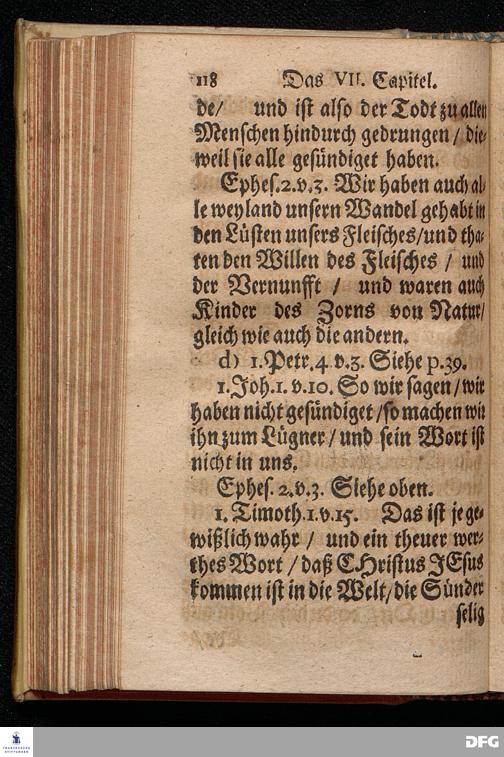 118 Das VII. Capitel.
de/ und ist also der Todt zu allen
Menschen hindurch gedrungen / die-
weil sie alle gesündiget haben.
Ephes. 2. v. 3. Wir haben auch al-
le weyland unsern Wandel gehabt in
den Lüsten unsers Fleisches/und tha-
ten den Willen des Fleisches / und
der Vernunfft / und waren auch
Kinder des Zorns von Natur/
gleich wie auch die andern.
d) 1. Petr. 4. v. 3. Siehe p. 39.
1. Joh. 1. v. 10. So wir sagen / wir
haben nicht gesündiget / so machen wir
ihn zum Lügner / und sein Wort ist
nicht in uns.
Ephes. 2. v. 3. Siehe oben.
1. Timoth. 1. v. 15. Das ist je ge-
wißlich wahr / und ein theuer wer-
thes Wort / daß CHristus JEsus
kommen ist in die Welt/die Sünder
selig
FRANCKESCHE
STIFTUNGEN
DFG